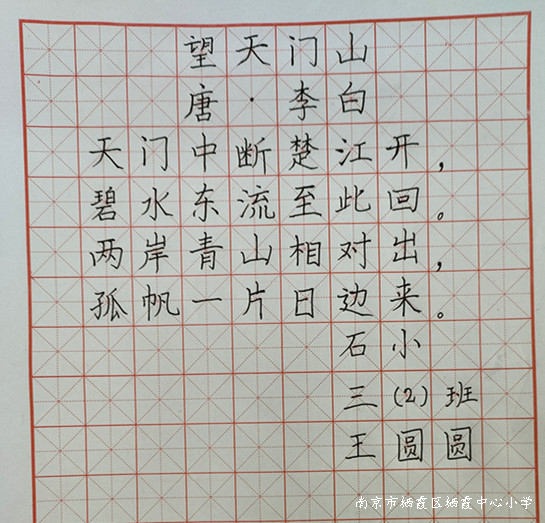 望天门山
唐·李白
天门中断楚江开，
碧水东流至此回。
两岸青山相对出，
孤帆一片日边来。
石小
三(2)班
王圆圆
南京市栖霞区栖霞中心小学